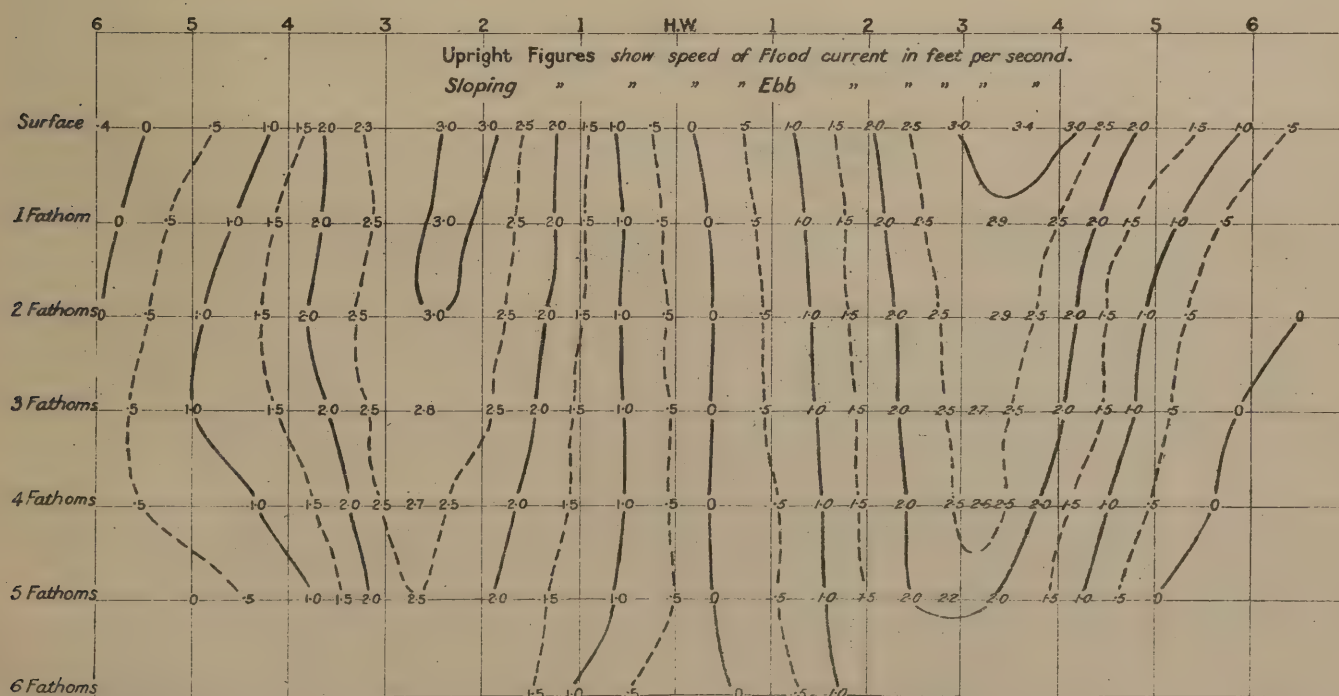 6 5 4 3 2 1 H.W. 1 2 3 4 5 6
Upright Figures show speed of Flood current in feet per second.
Sloping " " " " Ebb " " " " "
Surface .4 0 .5 1.0 1.5 2.0 2.3 3.0 3.0 2.5 2.0 1.5 1.0 .5 0 .5 1.0 1.5 2.0 2.5 3.0 3.4 3.0 2.5 2.0 1.5 1.0 .5
1 Fathom 0 .5 1.0 1.5 2.0 2.5 3.0 2.5 2.0 1.5 1.0 .5 0 .5 1.0 1.5 2.0 2.5 2.9 2.5 2.0 1.5 1.0 .5
2 Fathoms 0 .5 1.0 1.5 2.0 2.5 3.0 2.5 2.0 1.5 1.0 .5 0 .5 1.0 1.5 2.0 2.5 2.9 2.5 2.0 1.5 1.0 .5 0
3 Fathoms .5 1.0 1.5 2.0 2.5 2.8 2.5 2.0 1.5 1.0 .5 0 .5 1.0 1.5 2.0 2.5 2.7 2.5 2.0 1.5 1.0 .5 0
4 Fathoms .5 1.0 1.5 2.0 2.5 2.7 2.5 2.0 1.5 1.0 .5 0 .5 1.0 1.5 2.0 2.5 2.6 2.5 2.0 1.5 1.0 .5 0
5 Fathoms 0 .5 1.0 1.5 2.0 2.5 2.0 1.5 1.0 .5 0 .5 1.0 1.5 2.0 2.2 2.0 1.5 1.0 .5 0
6 Fathoms 1.5 1.0 .5 0 .5 1.0